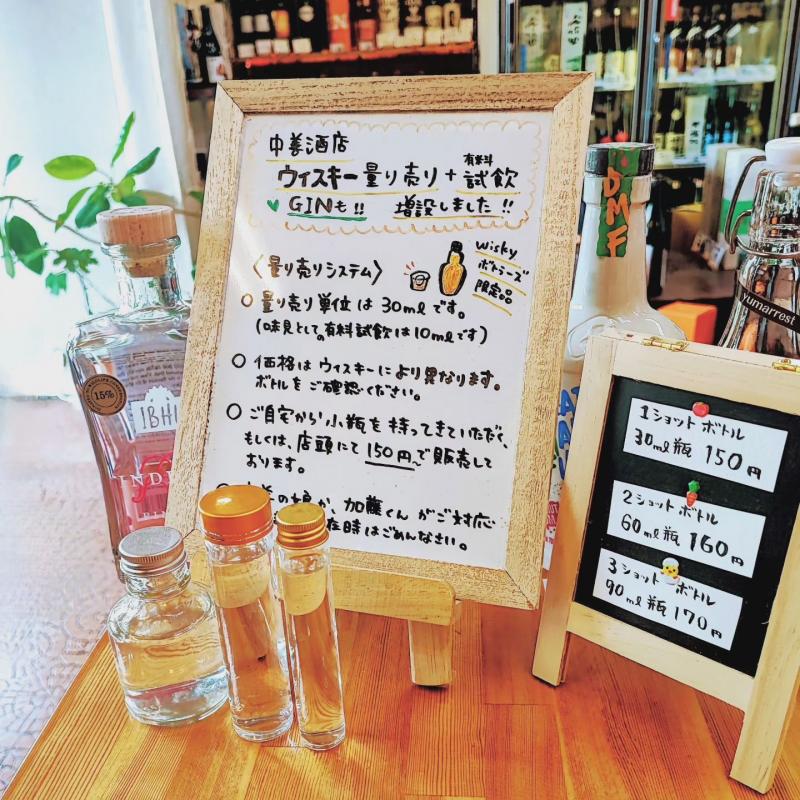 中善酒店
ウィスキー量り売り+有料試飲
GINも!! 増設しました!!
wisky
ボトラーズ
限定品
〈量り売りシステム〉
○ 量り売り単位は30mlです。
(味見としての有料試飲は10mlです)
○ 価格はウィスキーにより異なります。
ボトルをご確認ください。
○ ご自宅から小瓶を持ってきていただく、
もしくは、店頭にて150円~で販売して
おります。
の娘か、加藤くんがご対応
在時はごめんなさい。
15%
IBHI
INDI
DMF
yumarrest
1ショットボトル
30ml瓶 150円
2ショットボトル
60ml瓶 160円
3ショットボトル
90ml瓶 170円